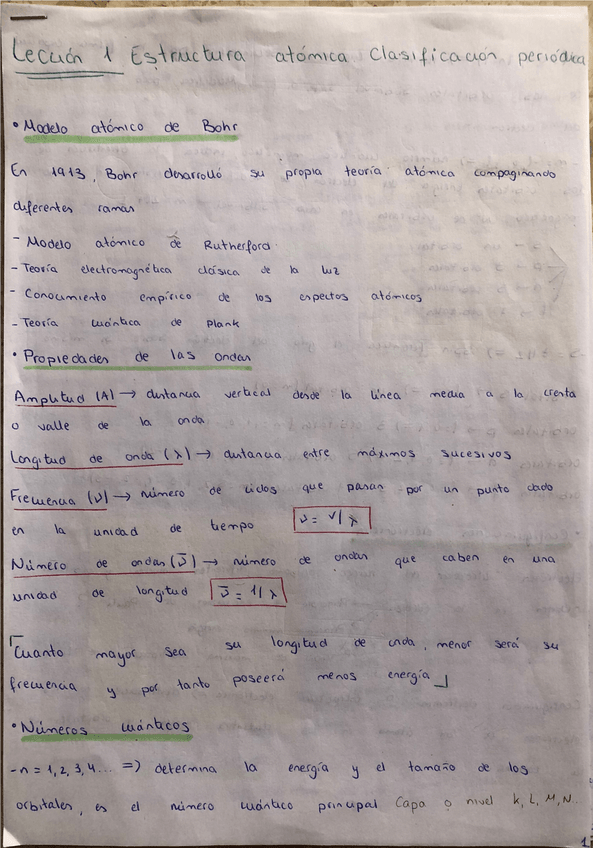 Lección 1 Estructura atómica Clasificación periódica
• Modelo atómico de Bohr
En 1913, Bohr desarrolló su propia teoría atómica compaginando
diferentes ramas
- Modelo atómico de Rutherford.
- Teoría electromagnética clásica de la luz
- Conocimiento empírico de los espectos atómicos
- Teoría cuántica de Plank
• Propiedades de las ondas
Amplitud (A) → distancia vertical desde la línea media a la cresta
o valle de la onda.
Longitud de onda (λ) → distancia entre máximos sucesivos
Frecuencia (ν) → número de ciclos que pasan por un punto dado
en la unidad de tiempo ν = v/λ
Número de ondas (ν̄) → número de ondas que caben en una
unidad de longitud ν̄ = 1/λ
⌈Cuanto mayor sea su longitud de onda, menor será su
frecuencia y por tanto poseerá menos energía⌋
• Números cuánticos
- n = 1, 2, 3, 4... => determina la energía y el tamaño de los
orbitales, es el número cuántico principal Capa o nivel K, L, M, N..
1